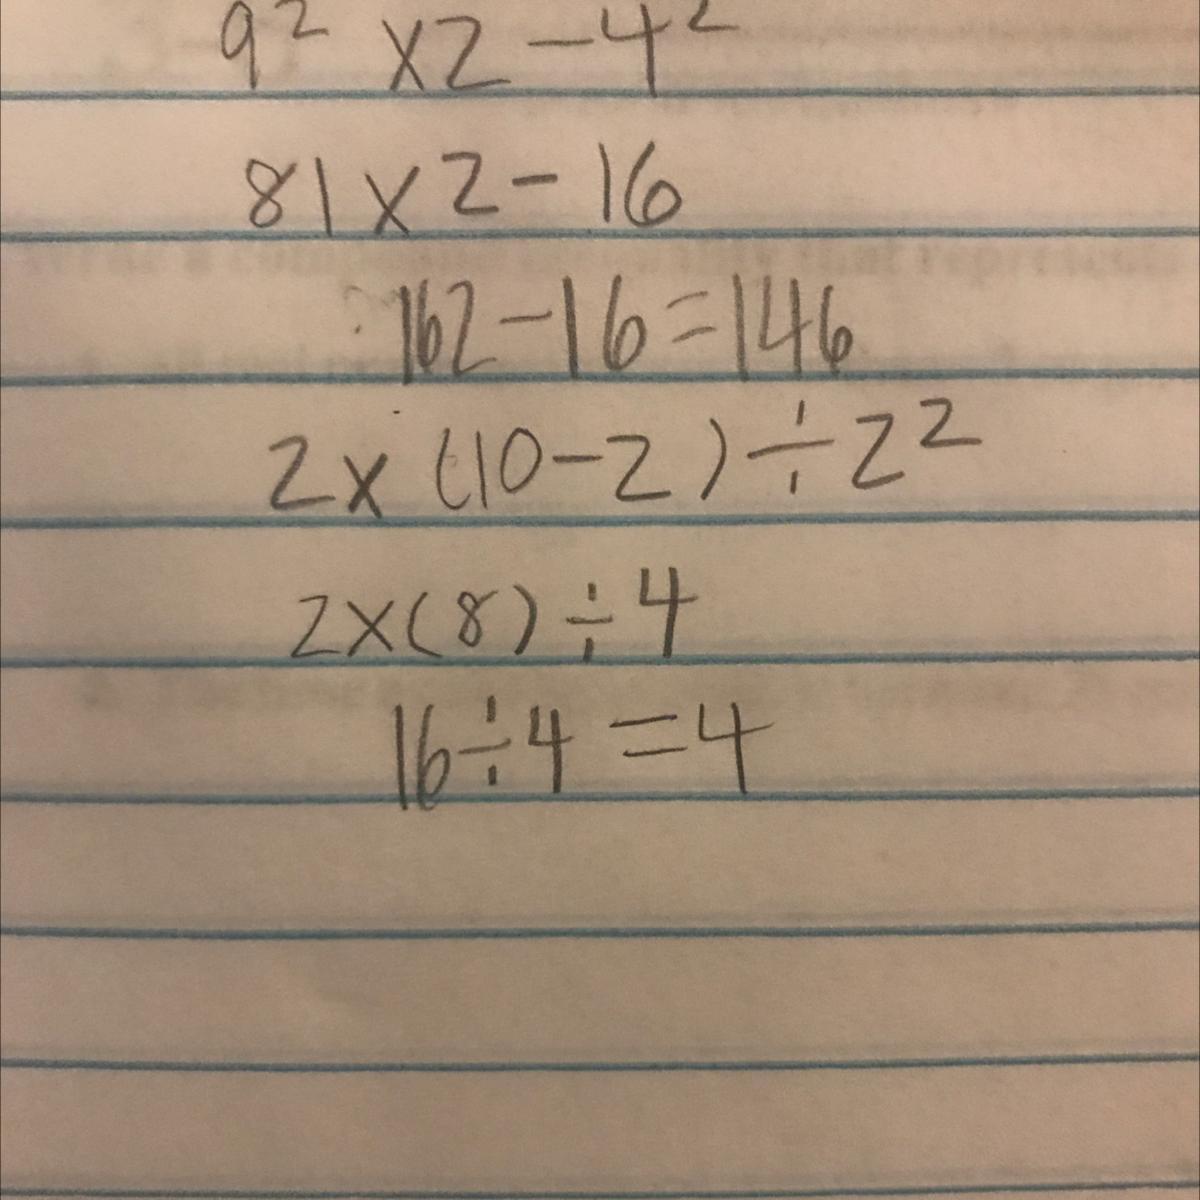 9² x2 - 4²
81 x 2 - 16
162 - 16 = 146
2x (10 - 2) ÷ 2²
2x(8) ÷ 4
16 ÷ 4 = 4